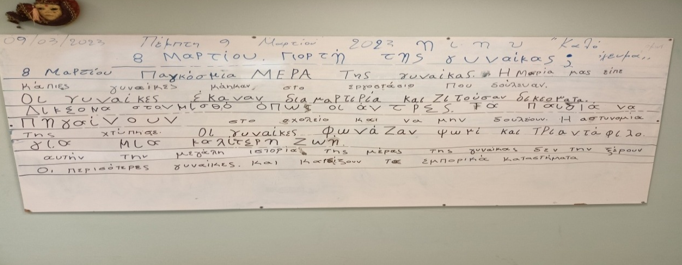 09/03/2023 Πέμπτη 9 Μαρτίου 2023
8 Μαρτίου. Γιορτή της γυναίκας;
8 Μαρτίου Παγκόσμια ΜΕΡΑ Της γυναίκας. Η Μαρία μας είπε
κάπιες γυναίκες κάηκαν, στο εργοστάσιο που δούλευαν.
Οι γυναίκες έκαναν διαμαρτερία και Ζιτούσαν δικεοματα.
Δικεονα στονμισθό οπως οι αντρες. τα παιδιά να
Πηγαίνουν στο σχολείο και να μην δουλευουν. Η αστυνομία
της χτίπησε. Οι γυναίκες Φωνάζαν ψωμί και Τριαντάφιλο
για μια καλίτερη Ζωή.
αυτήν την μεγάλη ιστορία της μέρας της γυναίκας δεν την ξέρουν
Οι περισότερες γυναίκες. και